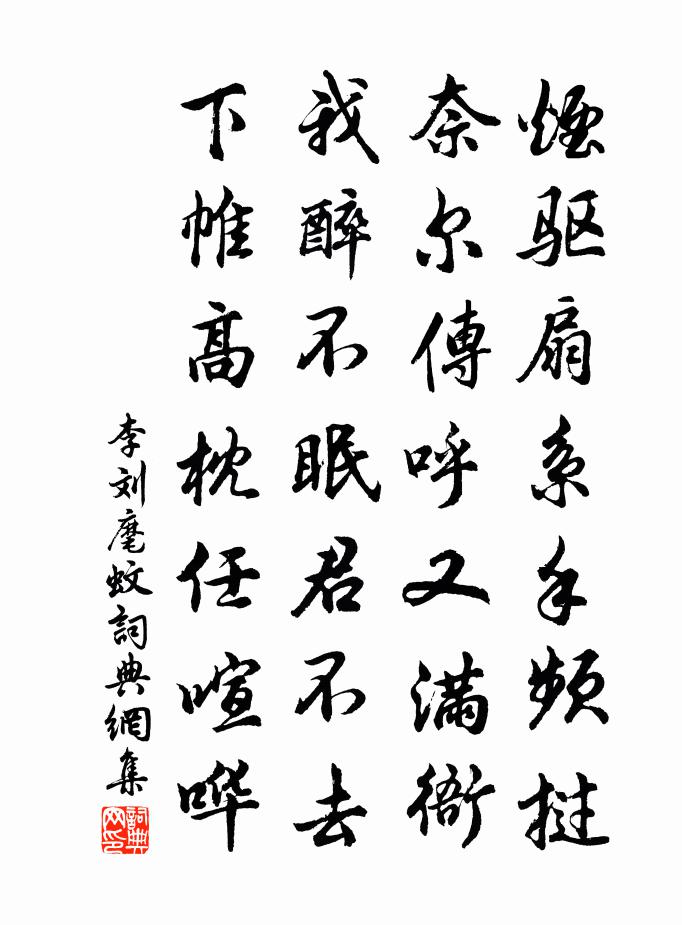 煙驱扇系手频挝
奈尔傳呼又滿衙
我醉不眠君不去
下帷高枕任喧哗
李刘麾蚊詞典網集
詞典网印